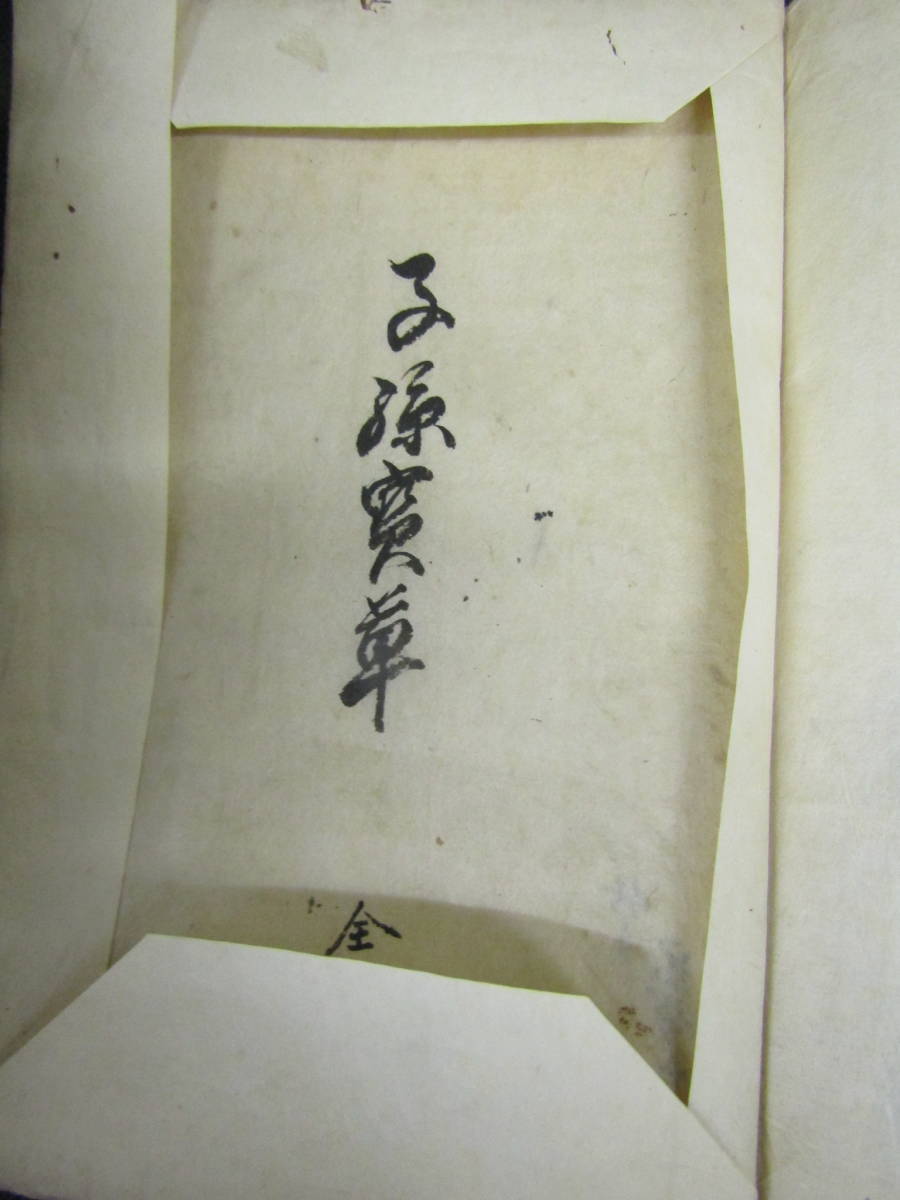 子孫寳草
全